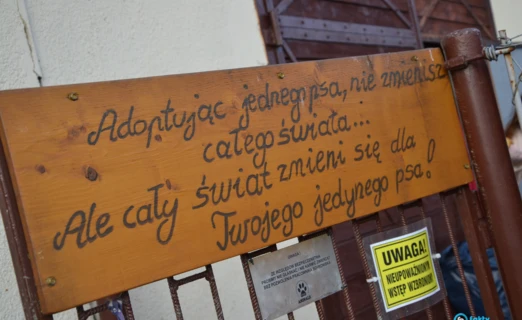 Adoptując jednego psa, nie zmienisz
całego świata...
Ale cały świat zmieni się dla
Twojego jedynego psa!
UWAGA!
NIEUPOWAŻNIONYM
WSTĘP WZBRONIONY
fakty